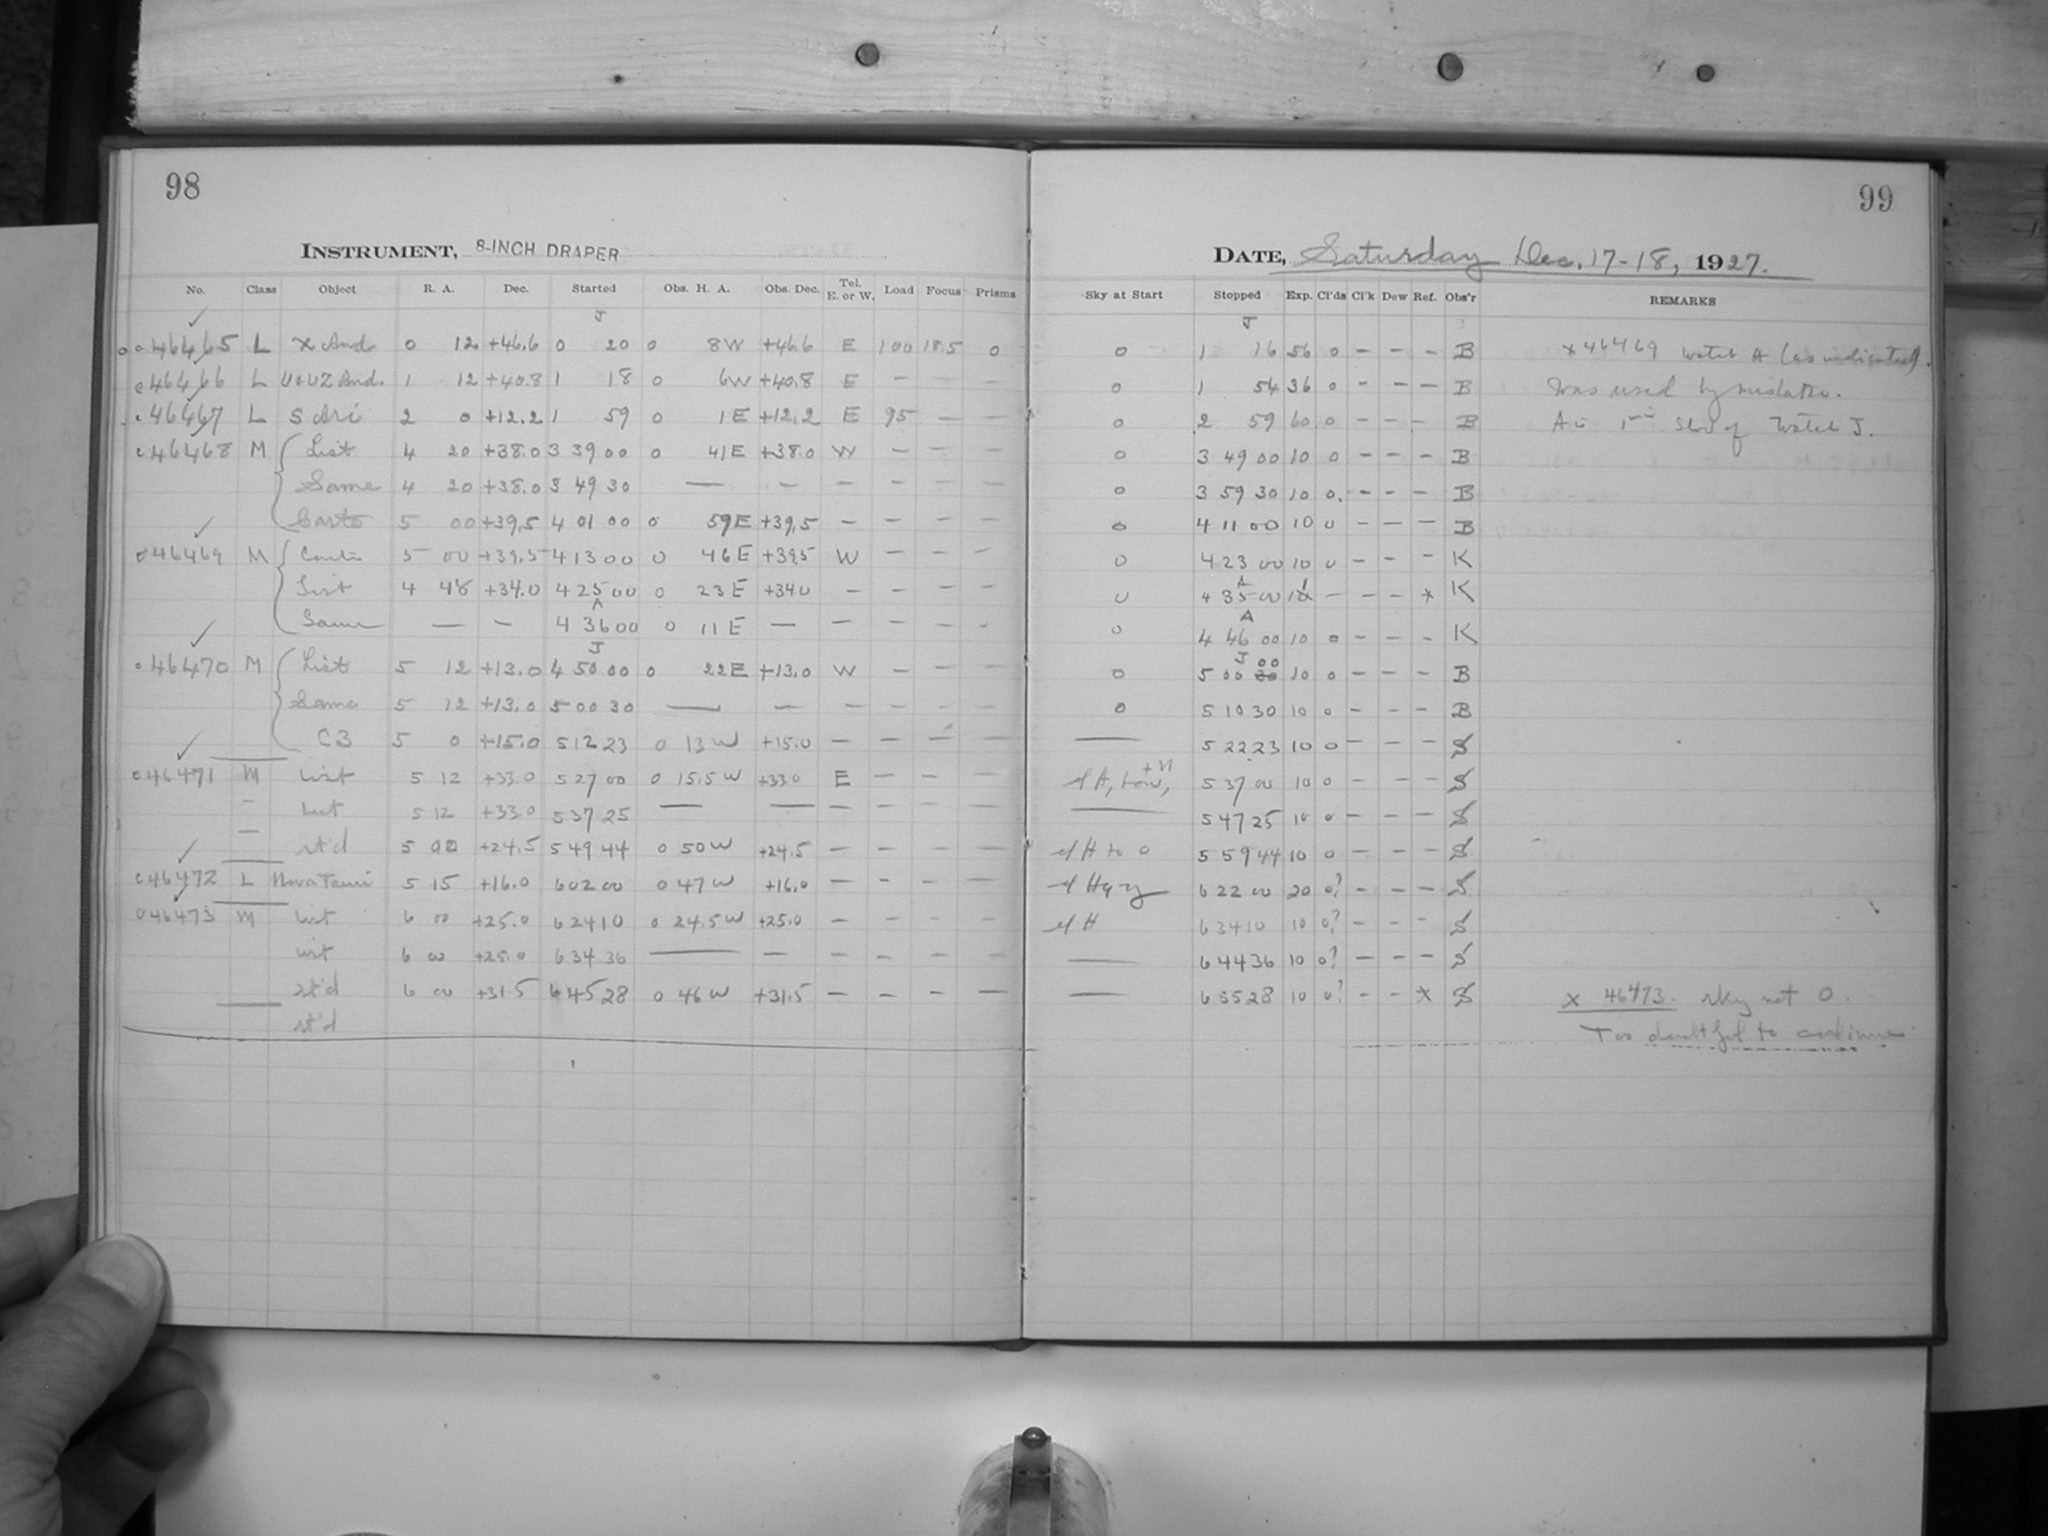 98
INSTRUMENT, 8-INCH DRAPER
No. Class Object R. A. Dec. Started Obs. H. A. Obs. Dec. Tel. E. or W. Load Focus Prisms
J
c46465 L X And 0 12 +46.6 0 20 0 8W +46.6 E 100 18.5 0
c46466 L U+UZ And. 1 12 +40.8 1 18 0 6W +40.8 E — — —
c46467 L S Ari 2 0 +12.2 1 59 0 1E +12.2 E 95 — —
c46468 M List 4 20 +38.0 3 39 00 0 41E +38.0 W — — —
Same 4 20 +38.0 3 49 30 — — — — — —
5 00 +39.5 4 01 00 0 59E +39.5 — — — —
c46469 M 5 00 +39.5 4 13 00 0 46E +39.5 W — — —
List 4 48 +34.0 4 25 00 0 23E +34.0 — — — —
A
Same — — 4 36 00 0 11E — — — — —
J
c46470 M List 5 12 +13.0 4 50 00 0 22E +13.0 W — — —
Same 5 12 +13.0 5 00 30 — — — — — —
C3 5 0 +15.0 5 12 23 0 13W +15.0 — — — —
c46471 M List 5 12 +33.0 5 27 00 0 15.5W +33.0 E — — —
— List 5 12 +33.0 5 37 25 — — — — — —
— st'd 5 00 +24.5 5 49 44 0 50W +24.5 — — — —
c46472 L Nova Tauri 5 15 +16.0 6 02 00 0 47W +16.0 — — — —
c46473 M List 6 00 +25.0 6 24 10 0 24.5W +25.0 — — — —
List 6 00 +25.0 6 34 36 — — — — — —
st'd 6 00 +31.5 6 45 28 0 46W +31.5 — — — —
st'd
99
DATE, Saturday Dec. 17-18, 1927.
Sky at Start Stopped Exp. Cl'ds Cl'k Dew Ref. Obs'r REMARKS
J
0 1 16 56 0 — — — B x 46469 Watch A (as indicated).
0 1 54 36 0 — — — B Was used by mistake.
0 2 59 60 0 — — — B A is 1 min slow of Watch J.
0 3 49 00 10 0 — — — B
0 3 59 30 10 0 — — — B
0 4 11 00 10 0 — — — B
0 4 23 00 10 0 — — — K
A
0 4 35 00 10 — — — x K
A
0 4 46 00 10 0 — — — K
J 00
0 5 00 30 10 0 — — — B
0 5 10 30 10 0 — — — B
— 5 22 23 10 0 — — — S
sl H, low, +N 5 37 00 10 0 — — — S
— 5 47 25 10 0 — — — S
sl H to 0 5 59 44 10 0 — — — S
sl Hazy 6 22 00 20 0? — — — S
sl H 6 34 10 10 0? — — — S
— 6 44 36 10 0? — — — S
— 6 55 28 10 0? — — x S x 46473. sky not 0.
Too doubtful to continue